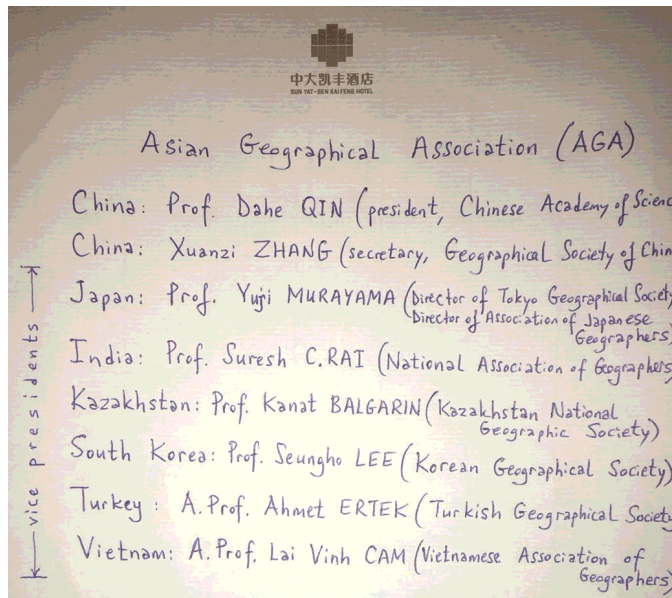 中大凯丰酒店
SUN YAT-SEN KAIFENG HOTEL
Asian Geographical Association (AGA)
China: Prof. Dahe QIN (president, Chinese Academy of Scienc
China: Xuanzi ZHANG (secretary, Geographical Society of Chin
Japan: Prof. Yuji MURAYAMA (Director of Tokyo Geographical Society
Director of Association of Japanese
Geographers)
India: Prof. Suresh C.RAI (National Association of Geographers
Kazakhstan: Prof. Kanat BALGARIN (Kazakhstan National
Geographic Society)
South Korea: Prof. Seungho LEE (Korean Geographical Society)
Turkey: A.Prof. Ahmet ERTEK (Turkish Geographical Society
Vietnam: A.Prof. Lai Vinh CAM (Vietnamese Association of
Geographers)
vice presidents